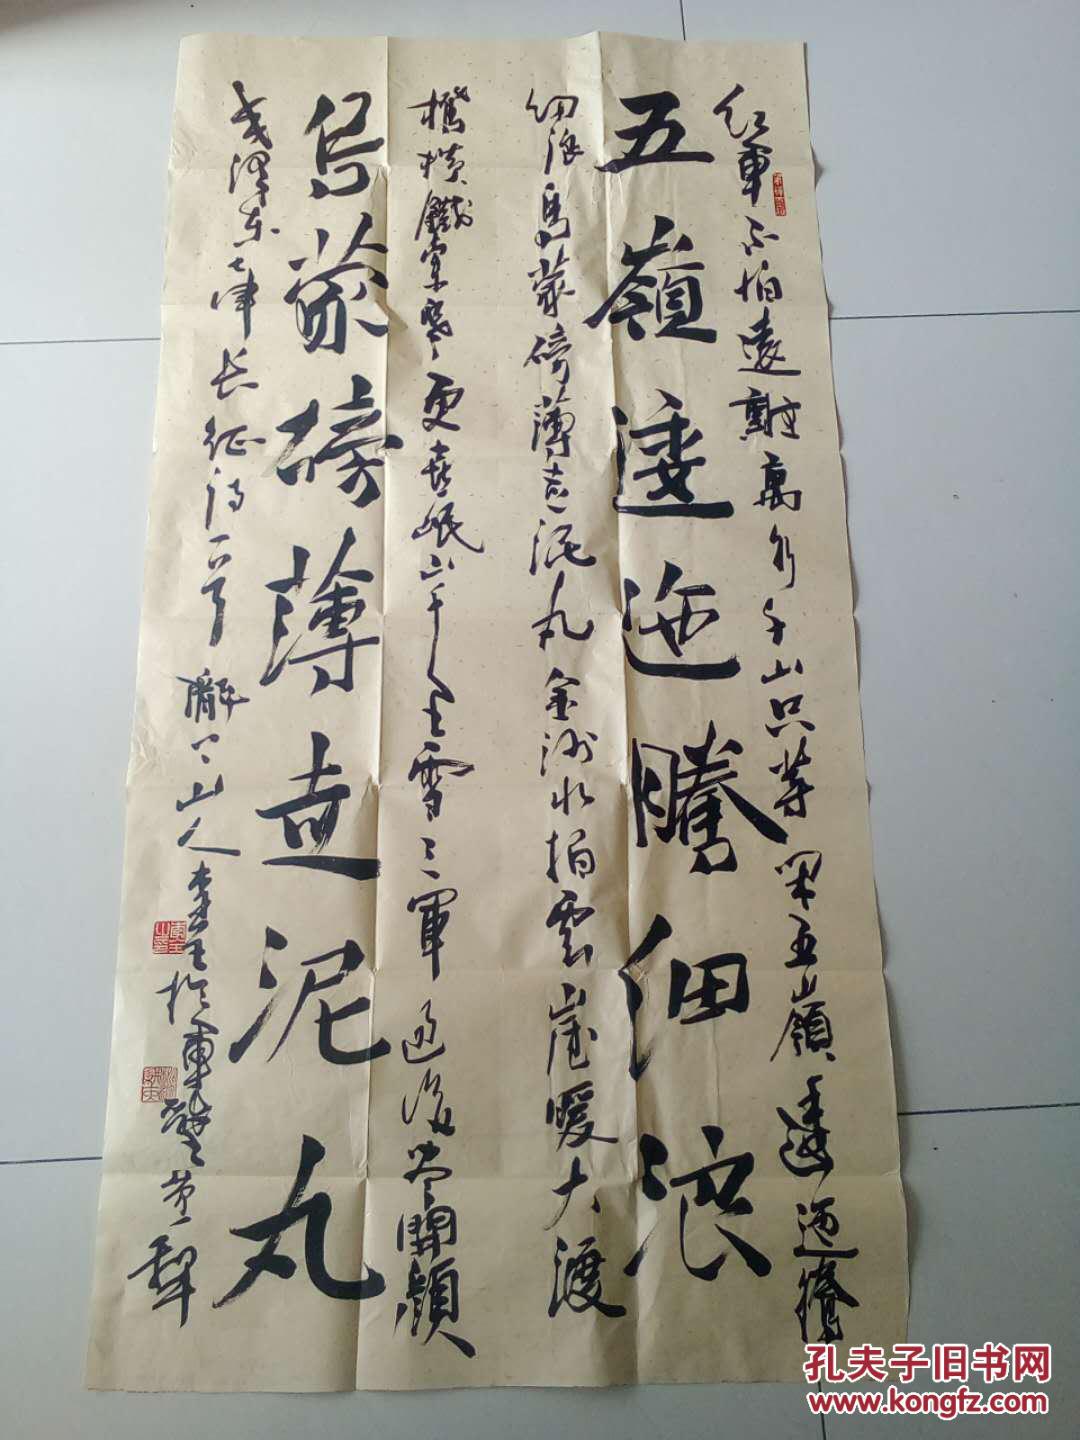 红軍不怕遠難萬水千山只等闲五嶺逶迤騰
五嶺逶迤騰細浪
細浪烏蒙磅薄走泥丸金沙水拍雲崖暖大渡
橋橫鐵索寒更喜岷山千里雪三軍過後尽開顔
烏蒙磅薄走泥丸
毛澤东七律长征诗一首 山人
孔夫子旧书网
www.kongfz.com